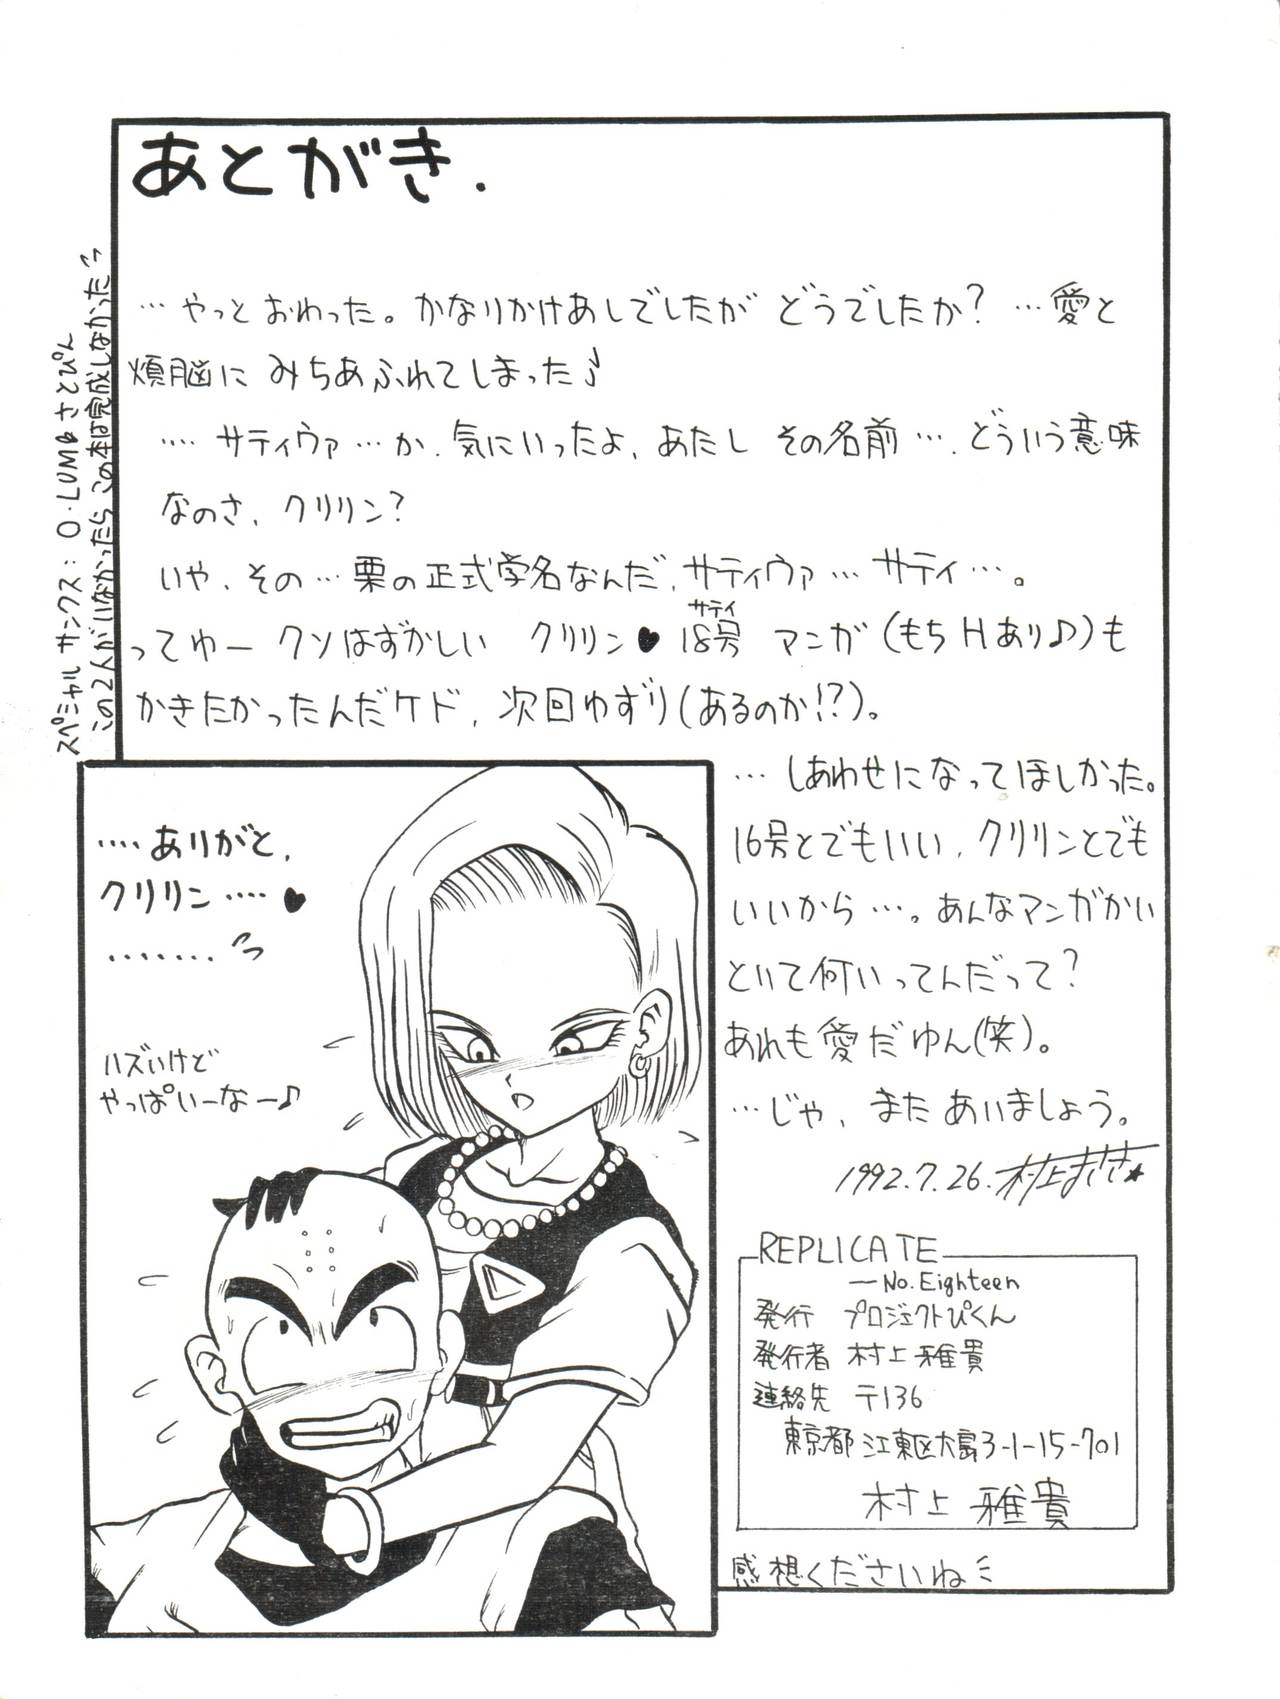 あとがき.
…やっとおわった。かなりかけあしでしたがどうでしたか?…愛と
煩脳にみちあふれてしまった♪
…. サティヴァ…か、気にいったよ、あたし その名前…. どういう意味
なのさ、クリリン?
いや、その…栗の正式学名なんだ、サティヴァ… サティ…。
ってゆー クソはずかしい クリリン♥18号 マンガ(もちHあり♪)も
サティ
かきたかったんだケド、次回ゆずり(あるのか!?)。
… しあわせになってほしかった。
16号とでもいい、クリリンとでも
いいから…。あんなマンガかい
といて何いってんだって?
あれも愛だゆん(笑)。
…じゃ、またあいましょう。
1992.7.26. 村上まさき★
スペシャルサンクス: O・LUM&さとぴん
この2人がいなかったらこの本は完成しなかった
….ありがと、
クリリン….♥
.......
ハズいけど
やっぱいーなー♪
REPLICATE
—No. Eighteen
発行 プロジェクトぴくん
発行者 村上 雅貴
連絡先 〒136
東京都 江東区大島3-1-15-701
村上 雅貴
感想くださいね